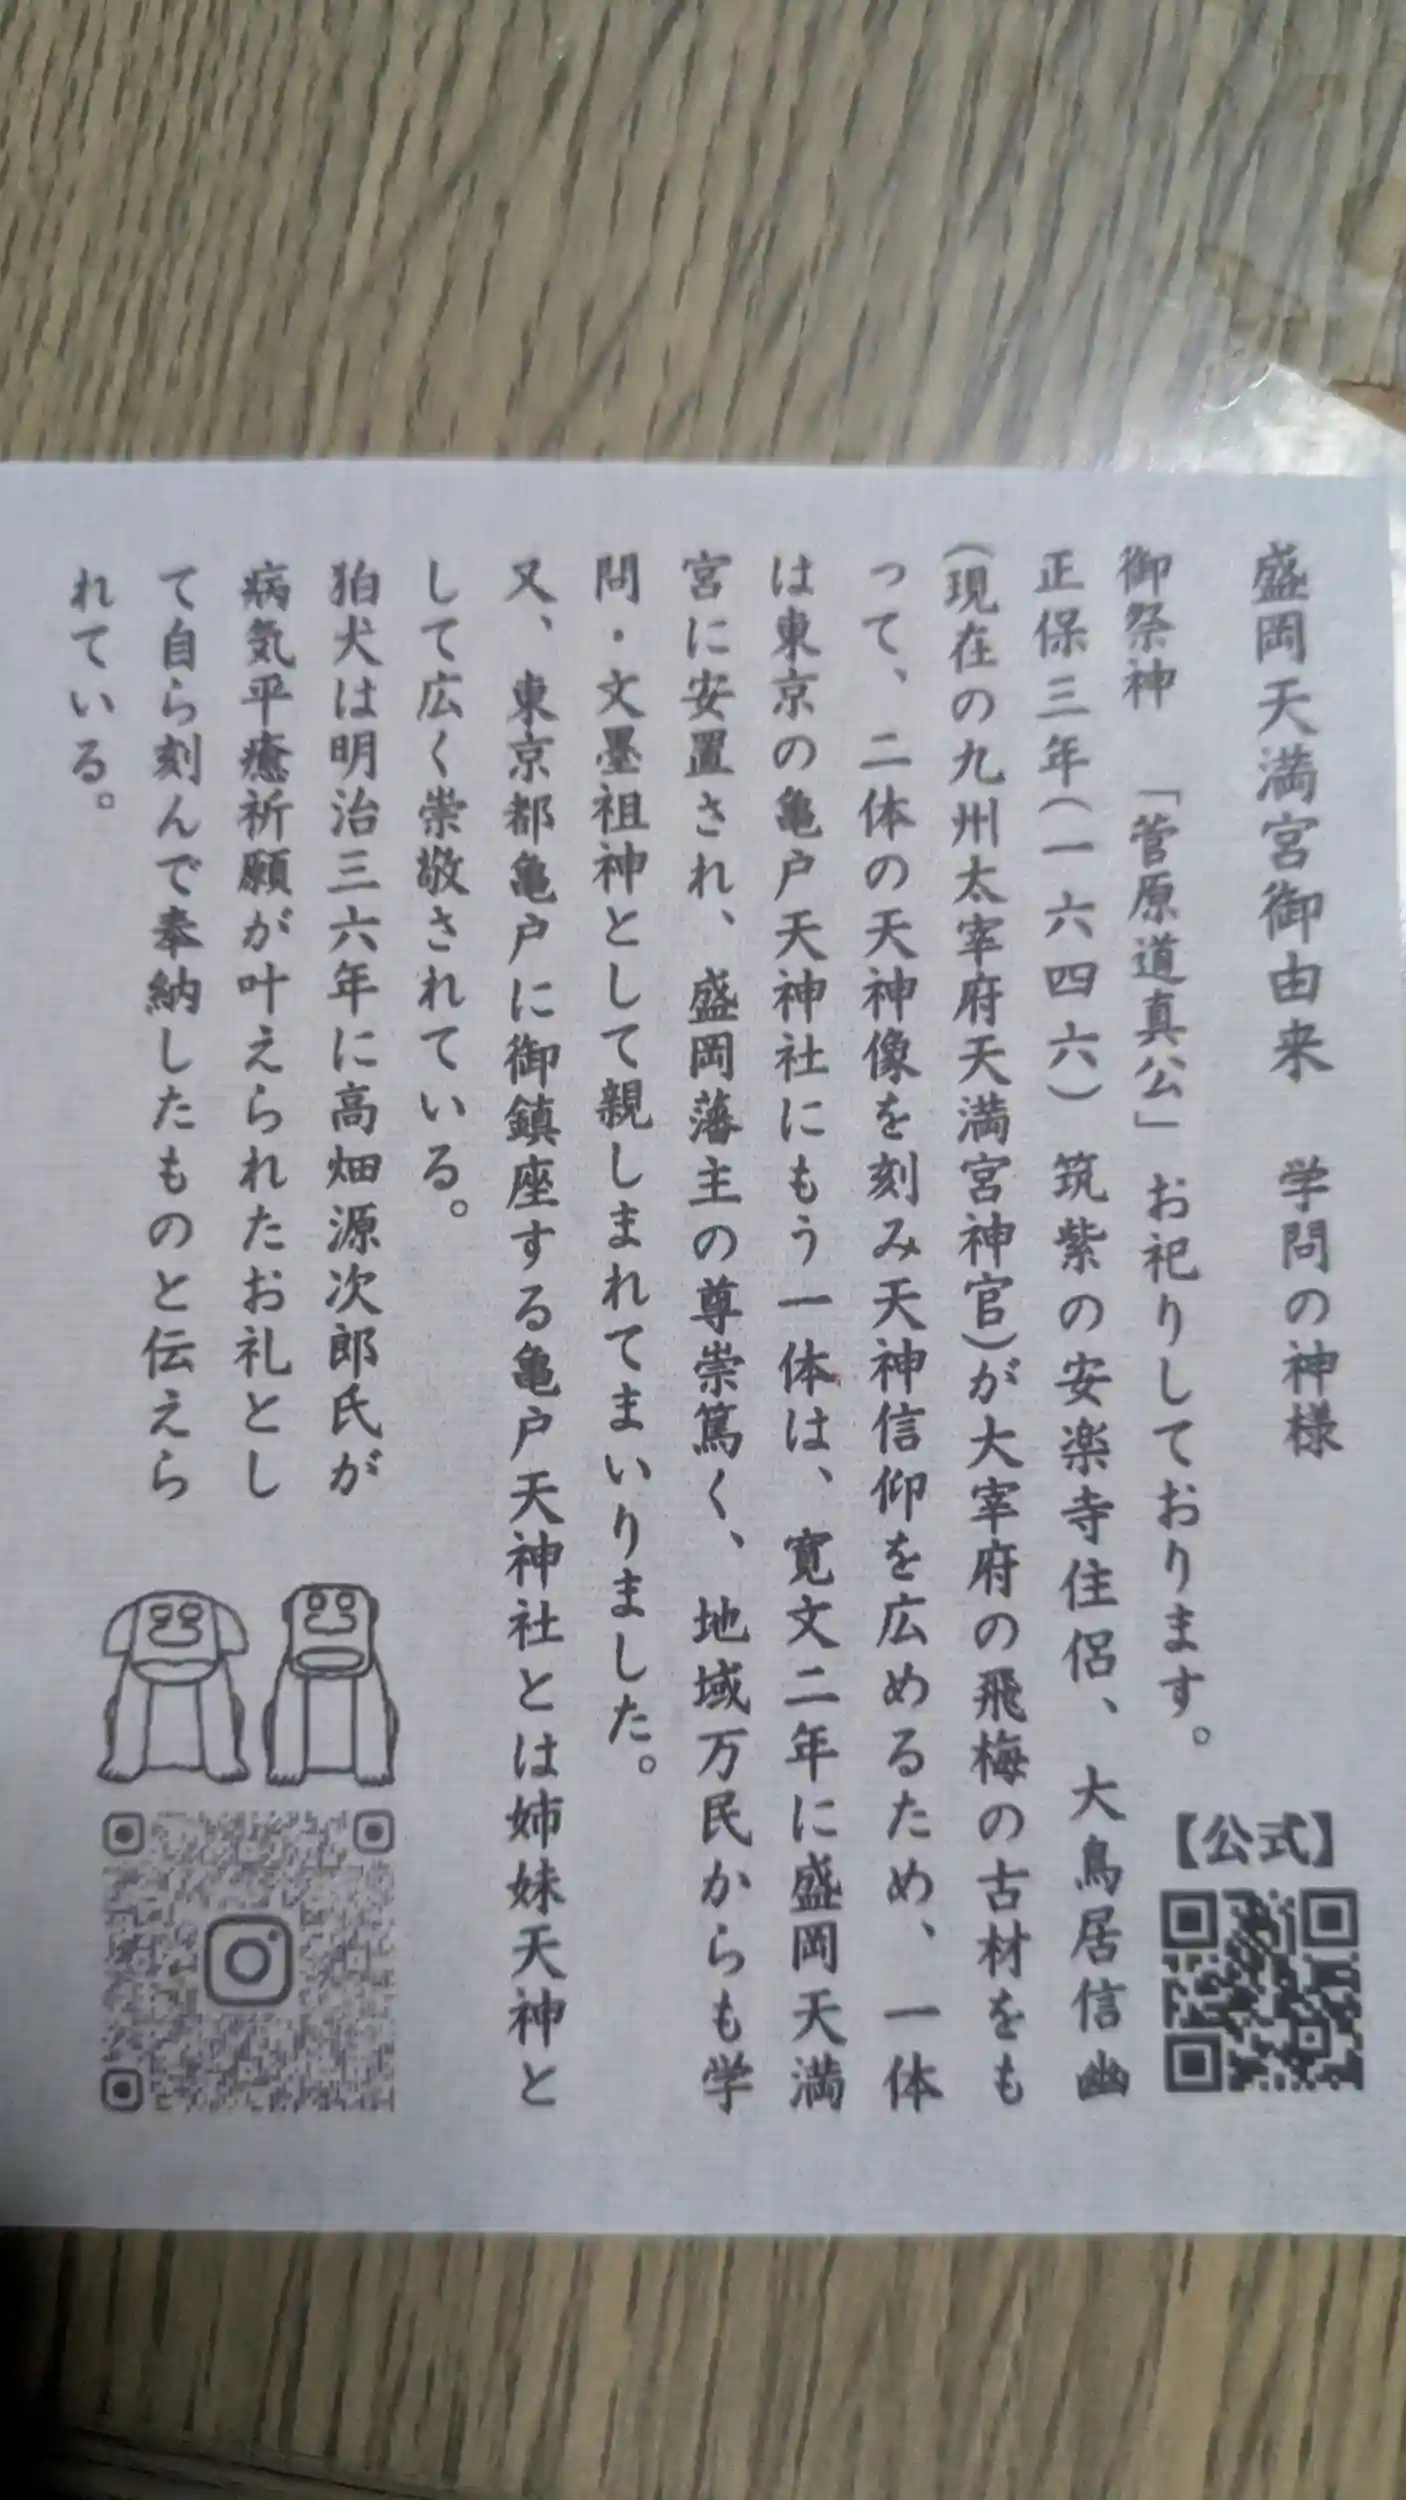 盛岡天満宮御由来　学問の神様
【公式】
御祭神　「菅原道真公」お祀りしております。
正保三年(一六四六)　筑紫の安楽寺住侶、大鳥居信幽
(現在の九州太宰府天満宮神官)が大宰府の飛梅の古材をも
って、二体の天神像を刻み天神信仰を広めるため、一体
は東京の亀戸天神社にもう一体は、寛文二年に盛岡天満
宮に安置され、盛岡藩主の尊崇篤く、地域万民からも学
問・文墨祖神として親しまれてまいりました。
又、東京都亀戸に御鎮座する亀戸天神社とは姉妹天神と
して広く崇敬されている。
狛犬は明治三六年に高畑源次郎氏が
病気平癒祈願が叶えられたお礼とし
て自ら刻んで奉納したものと伝えら
れている。